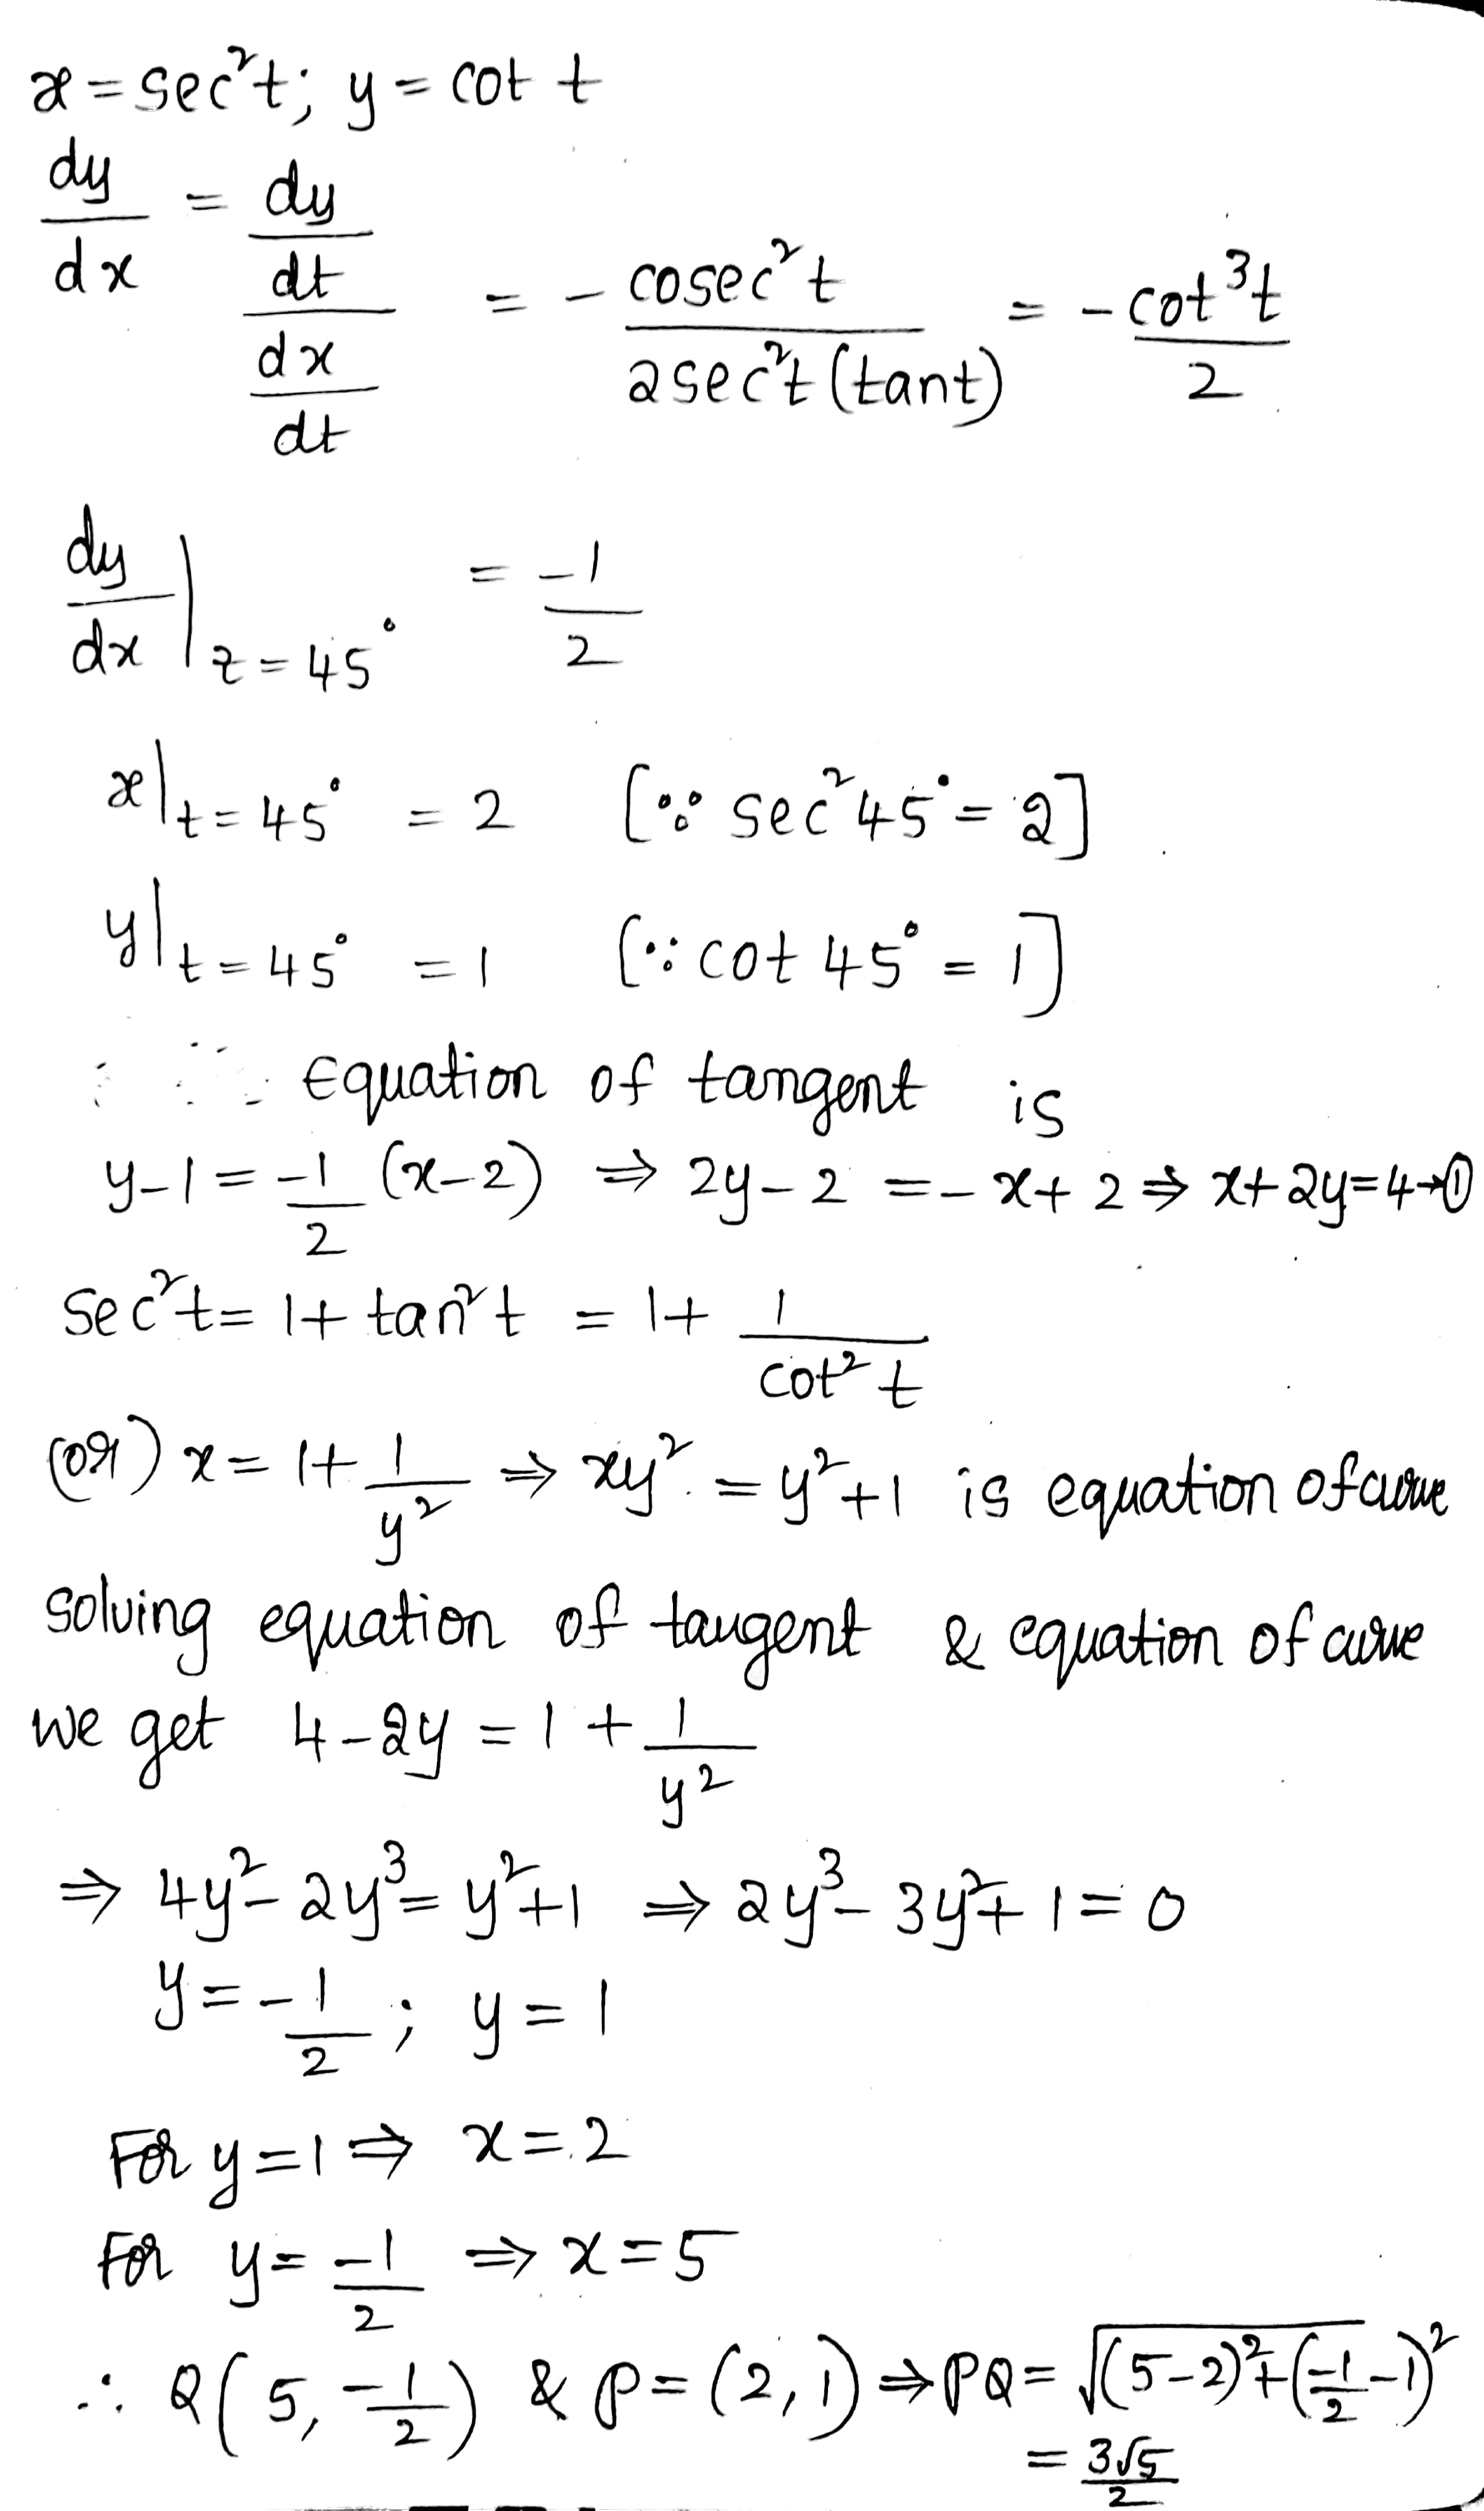 x = sec²t; y = cot t
dy/dx = (dy/dt)/(dx/dt) = - cosec²t / 2sec²t (tant) = - cot³t / 2
dy/dx | z = 45° = -1/2
x| t = 45° = 2 [∵ sec²45° = 2]
y| t = 45° = 1 [∵ cot 45° = 1]
∴ Equation of tangent is
y - 1 = -1/2 (x - 2) ⇒ 2y - 2 = - x + 2 ⇒ x + 2y = 4 → ①
sec²t = 1 + tan²t = 1 + 1/cot²t
(or) x = 1 + 1/y² ⇒ xy² = y² + 1 is equation of curve
solving equation of tangent & equation of curve
we get 4 - 2y = 1 + 1/y²
⇒ 4y² - 2y³ = y² + 1 ⇒ 2y³ - 3y² + 1 = 0
y = -1/2 ; y = 1
For y = 1 ⇒ x = 2
For y = -1/2 ⇒ x = 5
∴ Q(5, -1/2) & P = (2, 1) ⇒ PQ = √(5-2)² + (-1/2 - 1)²
= 3√5/2